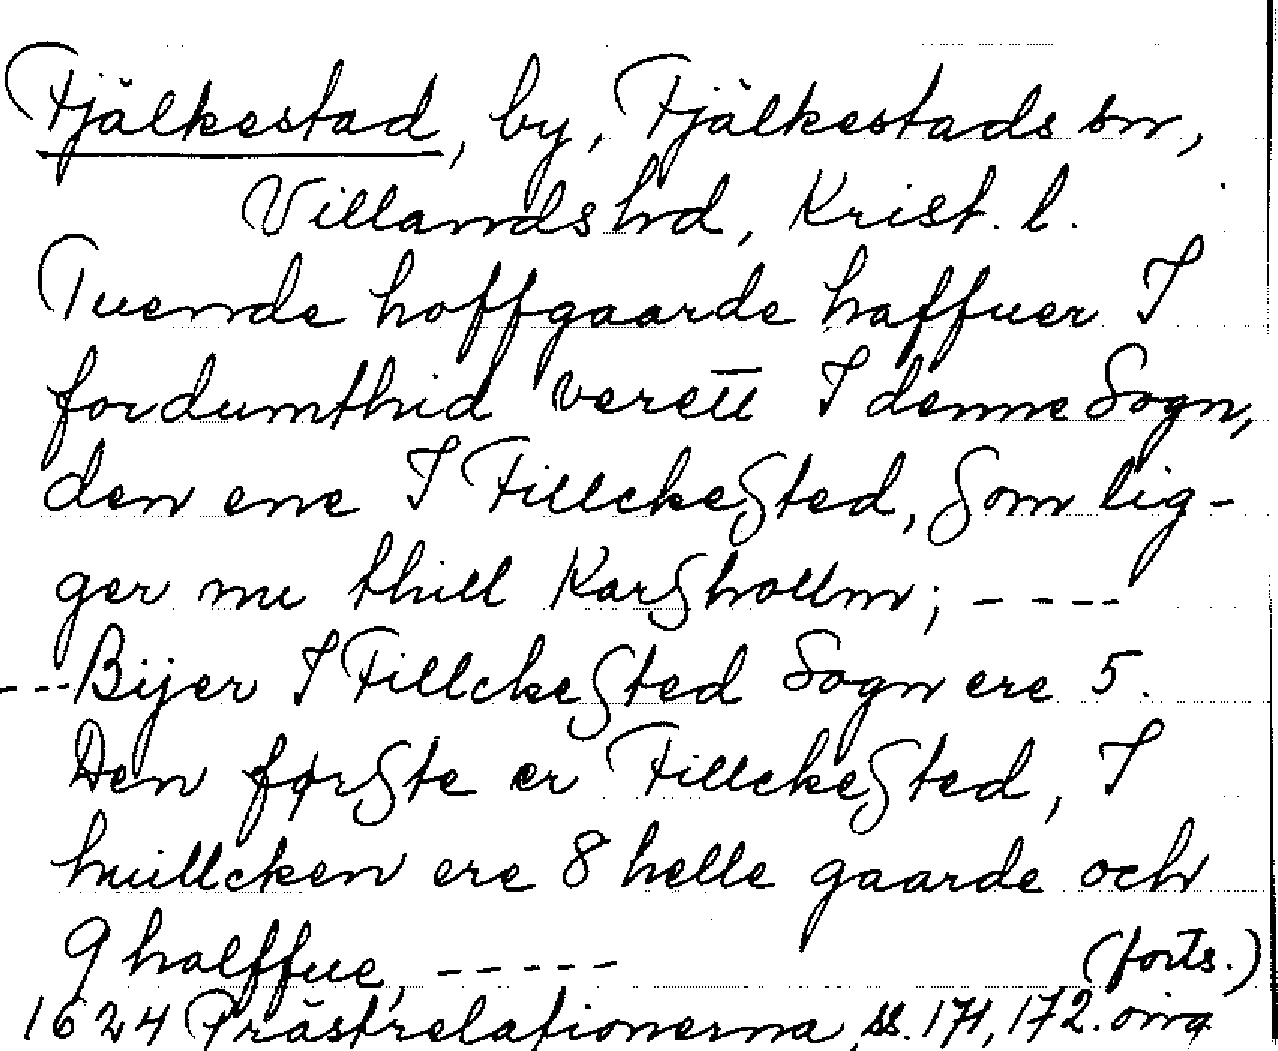 Fjälkestad, by, Fjälkestads sn,
Villands hd, Krist. l.
Tuende hoffgaarde haffuer I
fordumthid verett I denne Sogn,
den ene I Fillckested, som lig-
ger nu thill Karsholm; ----
---Bijer I Fillckested Sogn ere 5.
Den første er Fillckested, I
huillcken ere 8 helle gaarde och
9 halffue, -----
(forts.)
1624 Prästrelationerna, ss. 171, 172. orig